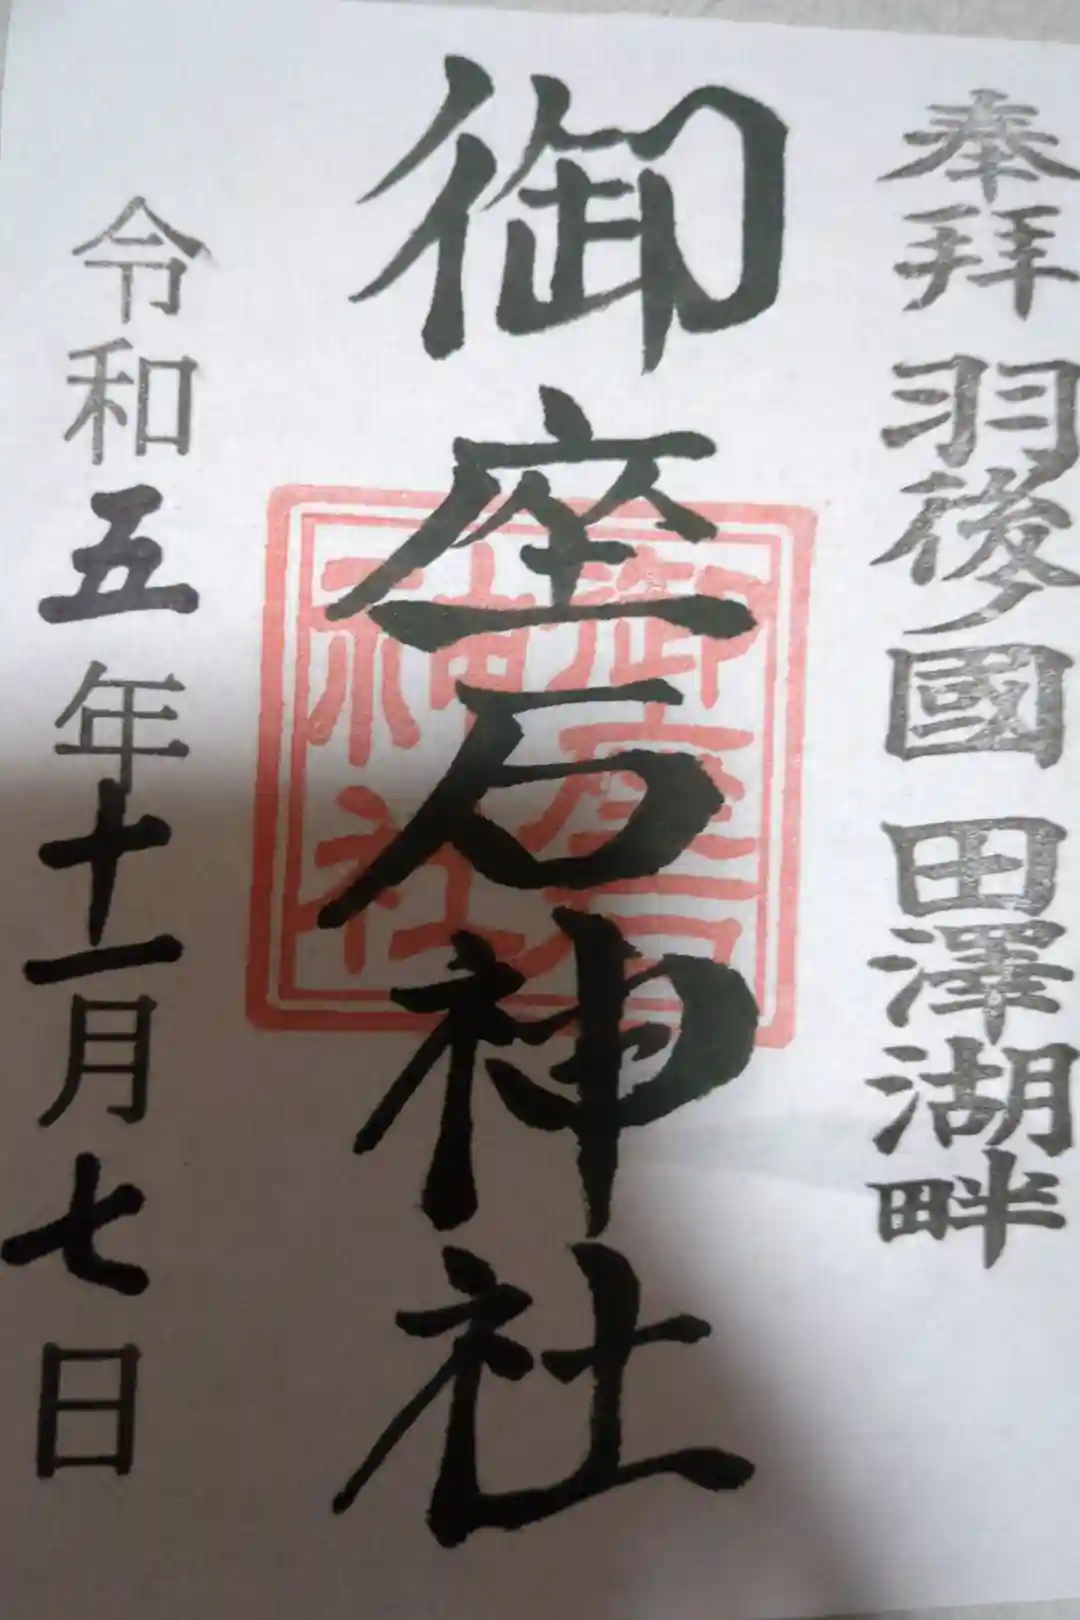 奉拜 羽後國 田澤湖畔
御座石神社
御座石
神社
令和五年十一月七日